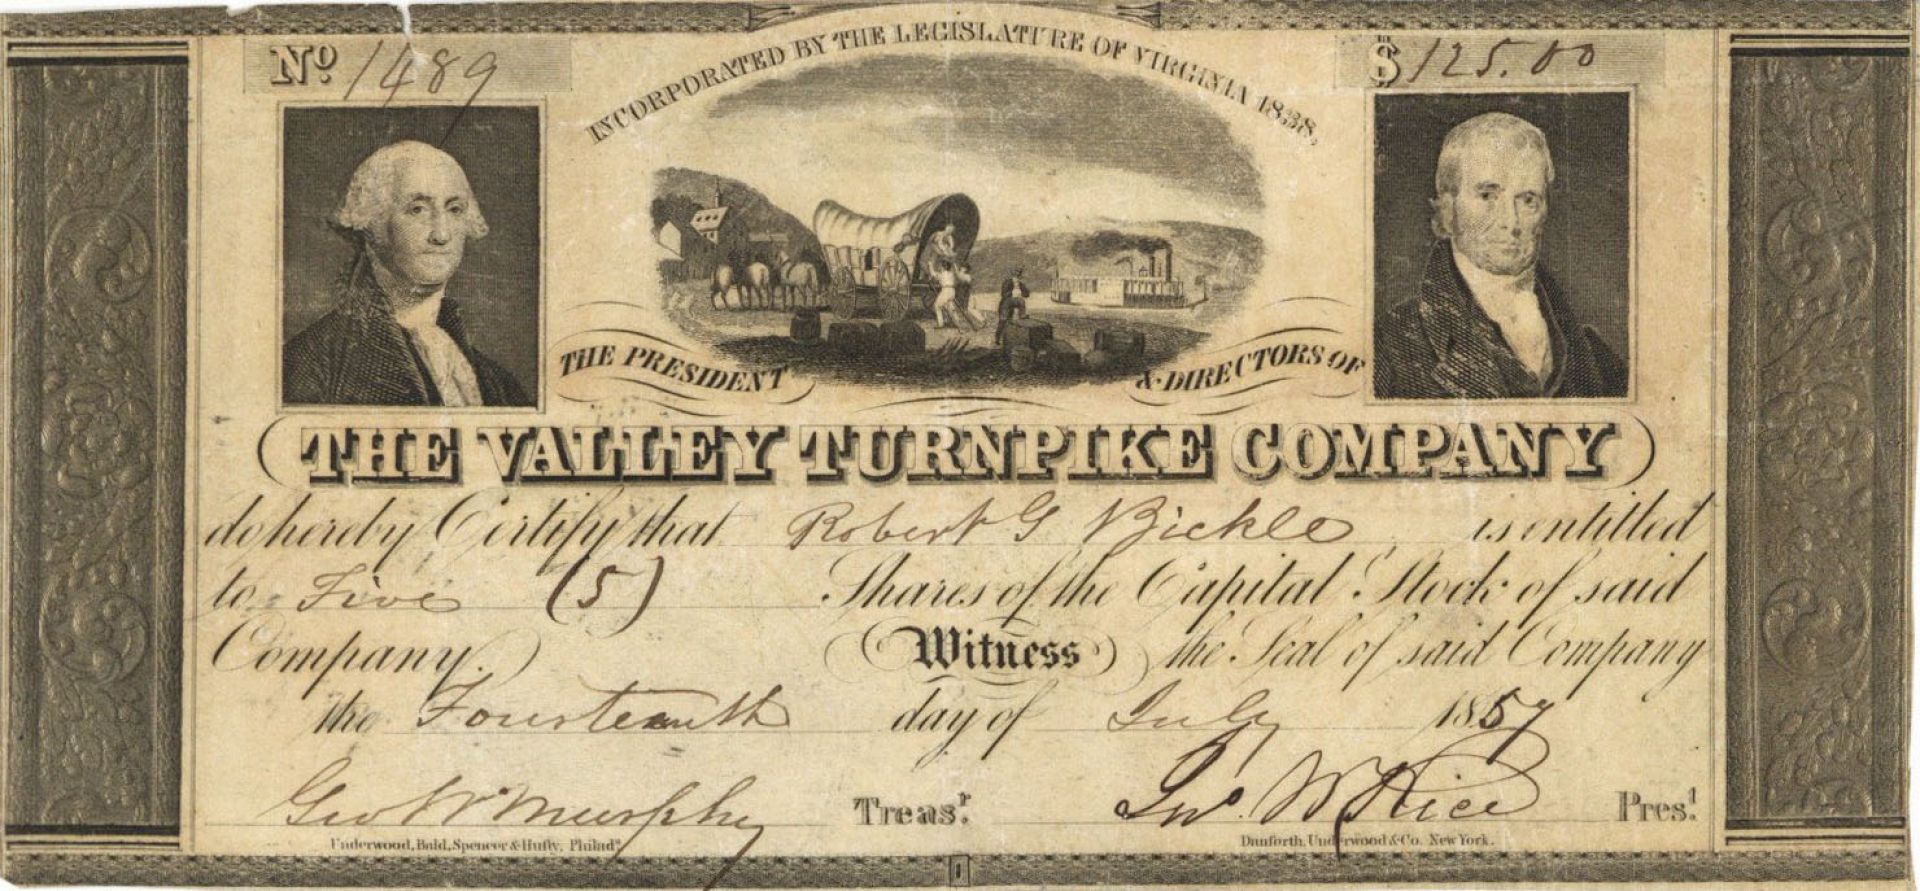 No 1489
INCORPORATED BY THE LEGISLATURE OF VIRGINIA 1838,
$ 125.00
THE PRESIDENT & DIRECTORS OF
THE VALLEY TURNPIKE COMPANY
do hereby Certify that Robert G Bickle is entitled
to Five (5) Shares of the Capital Stock of said
Company. Witness the Seal of said Company
the Fourteenth day of July 1857
Geo W Murphy Treasr. Jno. W Rice Prest.
Underwood, Bald, Spencer & Hufty, Philada. Danforth, Underwood & Co. New York.
1